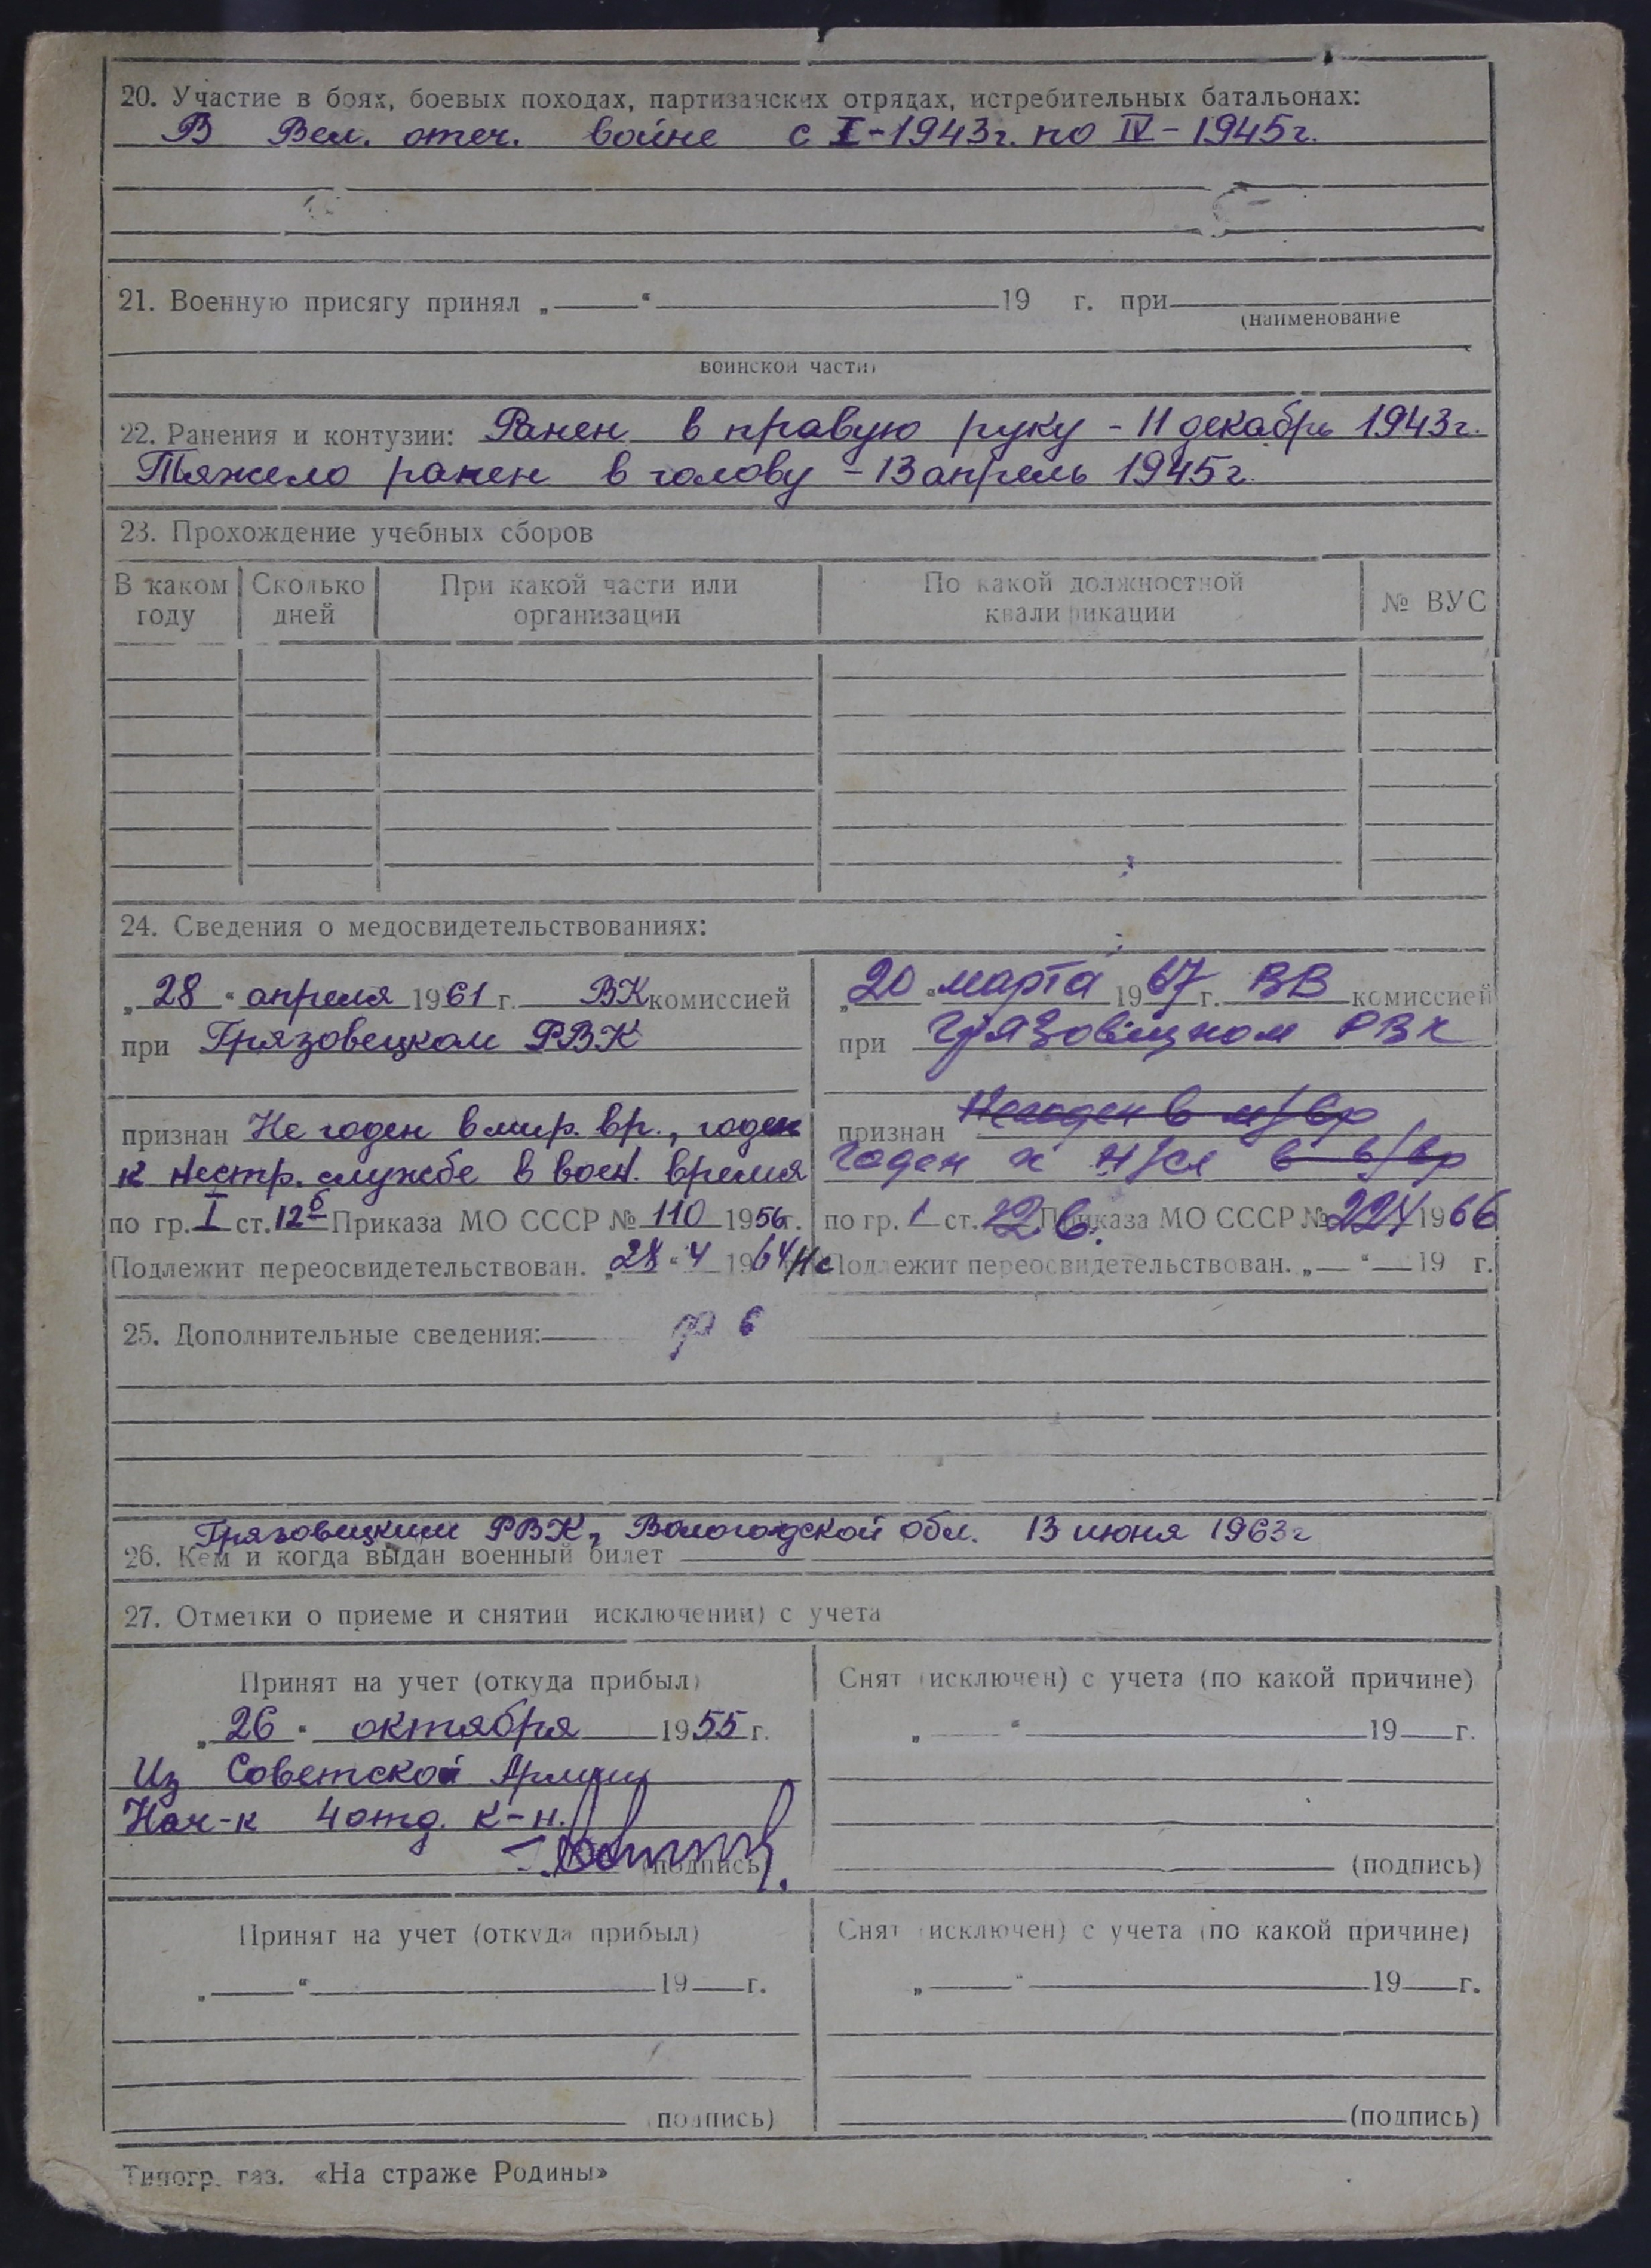 20. Участие в боях, боевых походах, партизанских отрядах, истребительных батальонах:
В Вел. отеч. войне с I-1943г. по IV-1945г.
21. Военную присягу принял „ “ 19 г. при
(наименование
воинской части)
22. Ранения и контузии: Ранен в правую руку - 11 декабрь 1943г.
Тяжело ранен в голову - 13 апрель 1945г.
23. Прохождение учебных сборов
В каком году
Сколько дней
При какой части или организации
По какой должностной квалификации
№ ВУС
24. Сведения о медосвидетельствованиях:
„28“ апреля 1961 г. ВК комиссией
при Грязовецком РВК
признан Не годен в мир. вр., годен
к нестр. службе в воен. время
по гр. I ст. 12б Приказа МО СССР № 110 1956г.
Подлежит переосвидетельствован. „28“ 4 1964
„20“ марта 1967 г. ВВ комиссией
при Грязовецком РВК
признан Негоден в м/вр
годен к н/сл в в/вр
по гр. 1 ст. 12в. Приказа МО СССР № 224 1966
Не Подлежит переосвидетельствован. „ “ 19 г.
25. Дополнительные сведения:
Грязовецким РВК, Вологодской обл. 13 июня 1963г
26. Кем и когда выдан военный билет
27. Отметки о приеме и снятии исключении) с учета
Принят на учет (откуда прибыл)
„26“ октября 1955 г.
Из Советской Армии
Нач-к 4 отд. к-н.
(подпись)
Снят (исключен) с учета (по какой причине)
„ “ 19 г.
(подпись)
Принят на учет (откуда прибыл)
„ “ 19 г.
(подпись)
Снят (исключен) с учета (по какой причине)
„ “ 19 г.
(подпись)
Типогр. газ. «На страже Родины»